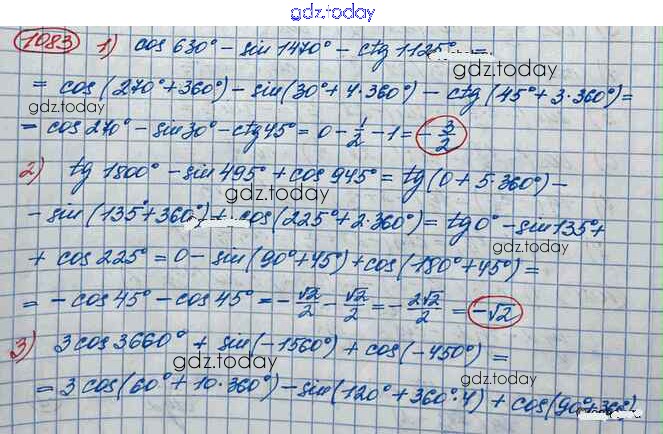 gdz.today
1083 1) cos 630° - sin 1470° - ctg 1125° =
gdz.today
= cos(270° + 360°) - sin(30° + 4·360°) - ctg(45° + 3·360°) =
gdz.today
= cos 270° - sin 30° - ctg 45° = 0 - 1/2 - 1 = -3/2
2) tg 1800° - sin 495° + cos 945° = tg(0 + 5·360°) -
gdz.today
- sin(135° + 360°) + cos(225° + 2·360°) = tg 0° - sin 135° +
gdz.today
+ cos 225° = 0 - sin(90° + 45°) + cos(180° + 45°) =
= - cos 45° - cos 45° = -√2/2 - √2/2 = -2√2/2 = -√2
3) 3 cos 3660° + sin(-1560°) + cos(-450°) =
gdz.today
= 3 cos(60° + 10·360°) - sin(120° + 360°·4) + cos(90° + 360°)